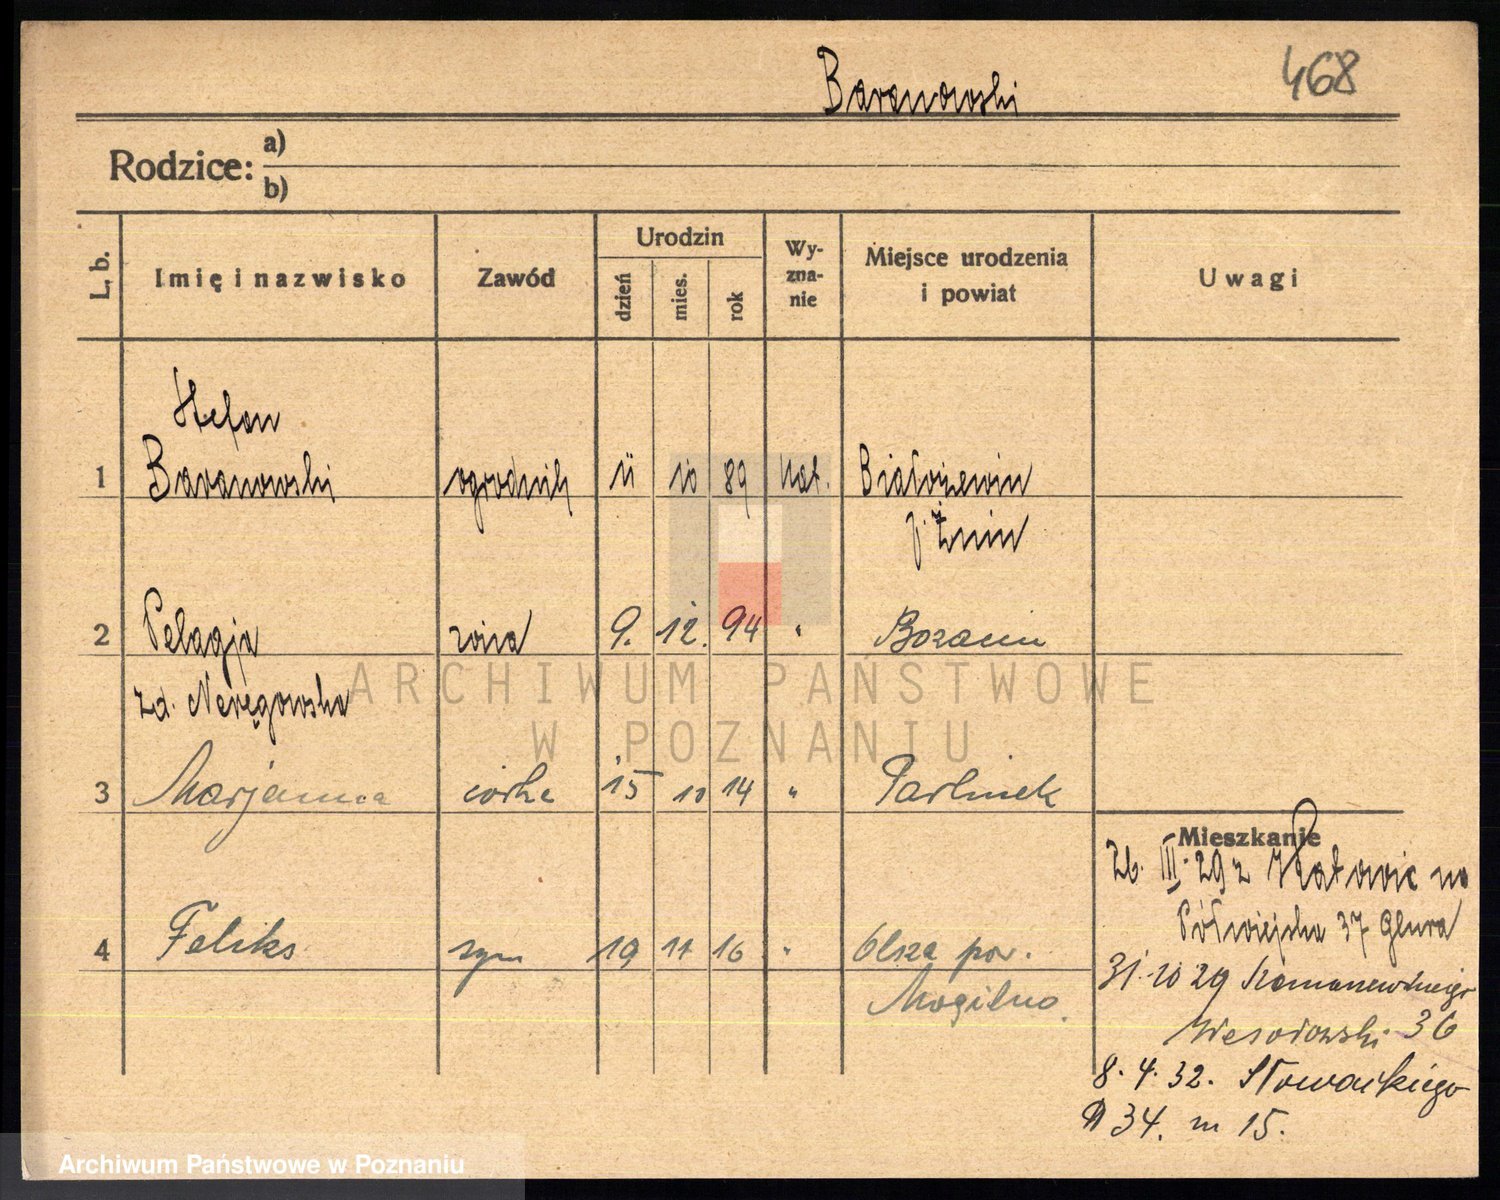 Baranowski 468
Rodzice: a)
b)
L. b. Imię i nazwisko Zawód Urodzin dzień mies. rok Wy-zna-nie Miejsce urodzenia i powiat Uwagi
Stefan
1 Baranowski ogrodnik 11 10 89 kat. Białożewin
p. Żnin
2 Pelagja żona 9. 12. 94 " 
zd.
3 Marjanna córka 15 14 " Parlinek
Mieszkanie
26. III. 29 z Katowic na
Półwiejska 37 Glura
4 Feliks syn 19 11 16 " Olsza pow.
Mogilno.
31. 10 29
Wesołowski 36
8. 4. 32. Słowackiego
34. m 15.
ARCHIWUM PAŃSTWOWE
W POZNANIU
Archiwum Państwowe w Poznaniu